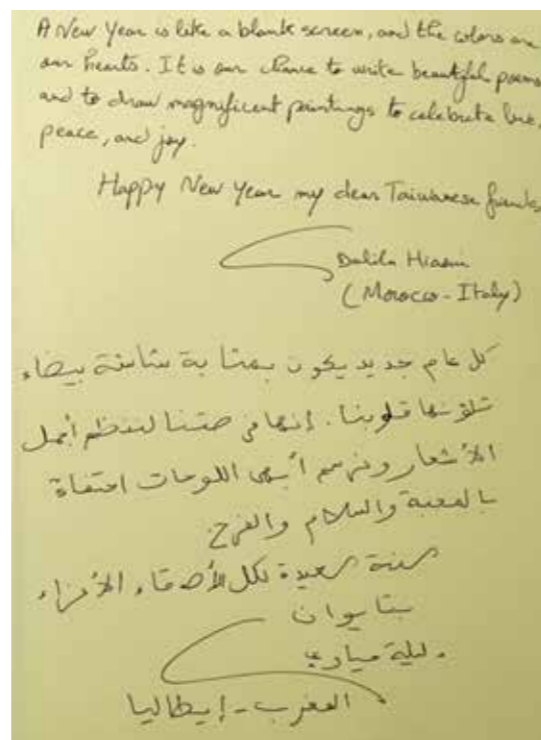 A New Year is like a blank screen, and the colors are
our hearts. It is our chance to write beautiful poems
and to draw magnificent paintings to celebrate love,
peace, and joy.
Happy New Year my dear Taiwanese friends
Dalila Hiaoui
(Morocco - Italy)
كل عام جديد يكون بمثابة شاشة بيضاء
تلونها قلوبنا. إنها فرصتنا لننظم أجمل
الأشعار ونرسم أبهى اللوحات احتفاء
بالمحبة والسلام والفرح.
سنة سعيدة لكل الأصدقاء الأعزاء
بتايوان
دليلة حياوي
المغرب - إيطاليا